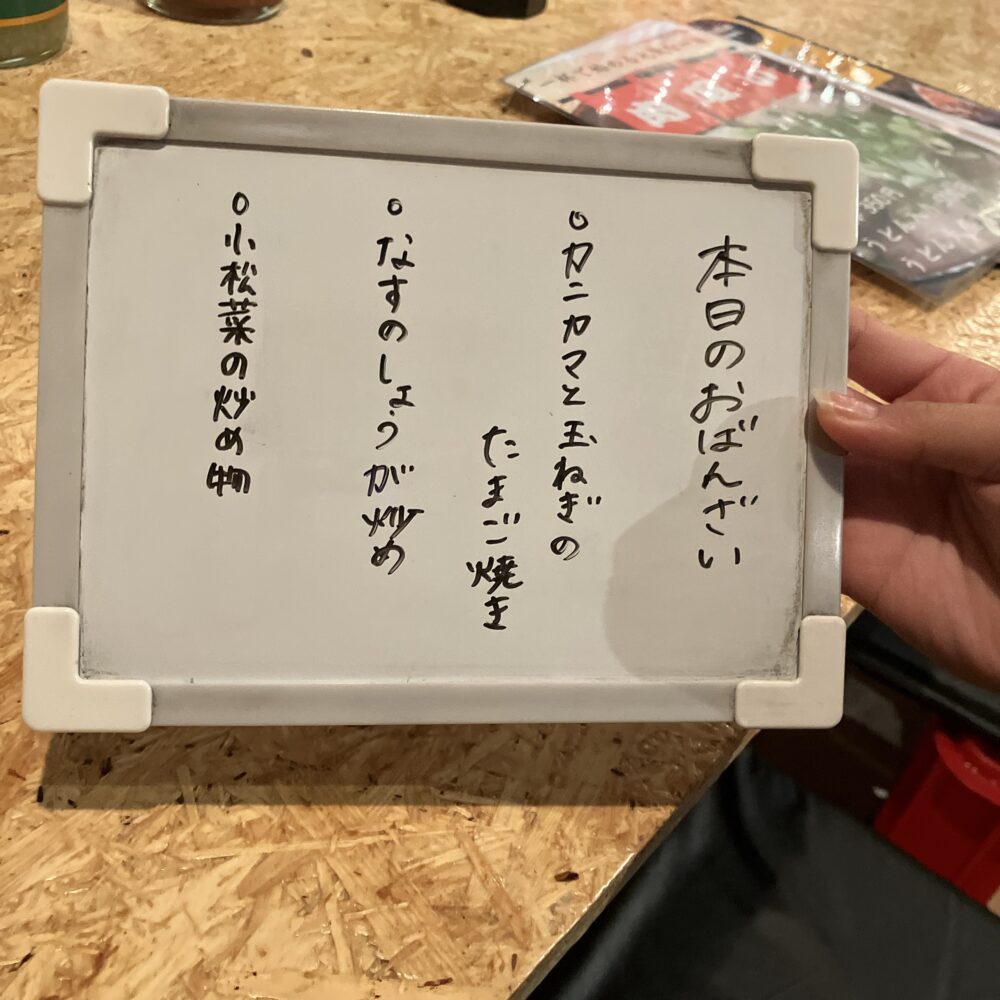 本日のおばんざい
○カニカマと玉ねぎの
たまご焼き
○なすのしょうが炒め
○小松菜の炒め物